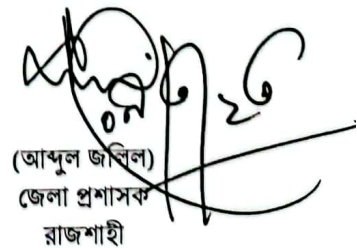 (আব্দুল জলিল)
জেলা প্রশাসক
রাজশাহী